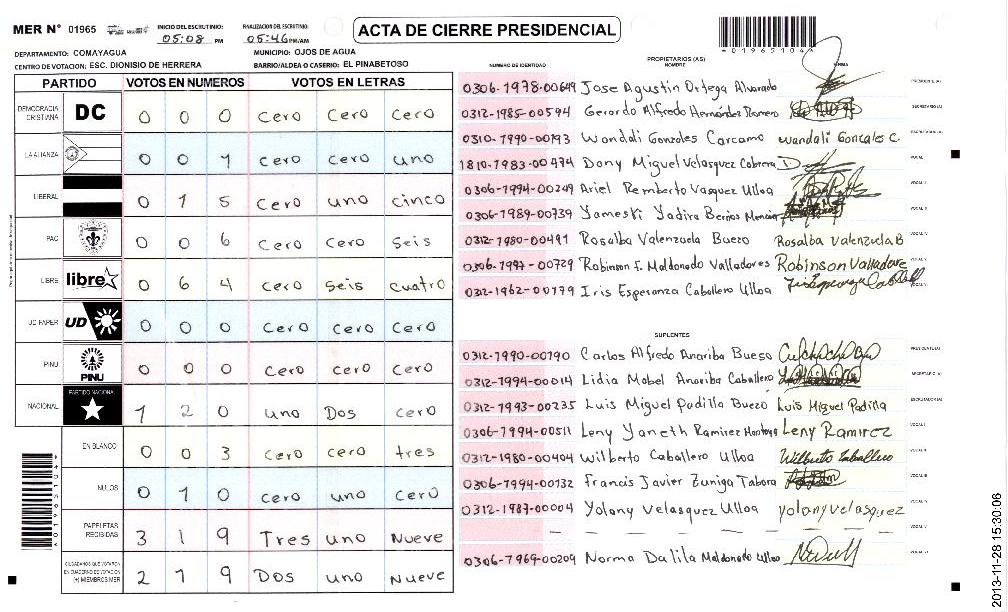 MER N° 01965
INICIO DEL ESCRUTINIO: 05:08 PM
FINALIZACION DEL ESCRUTINIO: 05:46 PM/AM
ACTA DE CIERRE PRESIDENCIAL
*01965104*
DEPARTAMENTO: COMAYAGUA
MUNICIPIO: OJOS DE AGUA
CENTRO DE VOTACION: ESC. DIONISIO DE HERRERA
BARRIO/ALDEA O CASERIO: EL PINABETOSO
PARTIDO VOTOS EN NUMEROS VOTOS EN LETRAS
DEMOCRACIA CRISTIANA DC 0 0 0 cero cero cero
LA ALIANZA 0 0 1 cero cero uno
LIBERAL 0 1 5 cero uno cinco
PAC 0 0 6 cero cero seis
LIBRE libre 0 6 4 cero seis cuatro
UD-FAPER UD 0 0 0 cero cero cero
PINU PINU 0 0 0 cero cero cero
NACIONAL PARTIDO NACIONAL 1 2 0 uno Dos cero
EN BLANCO 0 0 3 cero cero tres
NULOS 0 1 0 cero uno cero
PAPELETAS RECIBIDAS 3 1 9 Tres uno Nueve
CIUDADANOS QUE VOTARON EN CUADERNO DE VOTACION (+) MIEMBROS MER 2 1 9 Dos uno Nueve
NUMERO DE IDENTIDAD
PROPIETARIOS (AS)
NOMBRE
FIRMA
0306-1978-00649 Jose Agustin Ortega Alvarado PRESIDENTE (A)
0312-1985-00594 Gerardo Alfredo Hernández Romero SECRETARIO (A)
0310-1990-00193 Wanddli Gonzoles Carcamo wandali Gonzales C. ESCRUTADOR (A)
1810-1983-00474 Dony Miguel Velasquez Cabrera VOCAL I
0306-1994-00249 Ariel Remberto Vasquez Ulloa VOCAL II
0306-1989-00739 Yameski Yadira Berrios VOCAL III
0312-1980-00491 Rosalba Valenzuela Buezo Rosalba Valenzuela B VOCAL IV
0306-1997-00729 Robinson F. Maldonado Valladores Robinson Valladares VOCAL V
0312-1962-00179 Iris Esperanza Caballero Ulloa
SUPLENTES
0312-1990-00190 Carlos Alfredo Anariba Bueso PRESIDENTE (A)
0312-1994-00014 Lidia Mabel Anariba Caballero SECRETARIO (A)
0312-1993-00235 Luis Miguel Padilla Buezo Luis Miguel Padilla ESCRUTADOR (A)
0306-1994-00511 Leny Yaneth Ramirez Montoya Leny Ramirez VOCAL I
0312-1980-00404 Wilberto Caballero Ulloa Wilberto Caballero VOCAL II
0306-1994-00132 Francis Javier Zuniga Tabora VOCAL III
0312-1987-00004 Yolany Velasquez Ulloa yolany velasquez VOCAL IV
VOCAL V
0306-1969-00209 Norma Dalila Maldonado Ulloa
*01965104*
2013-11-28 15:30:06